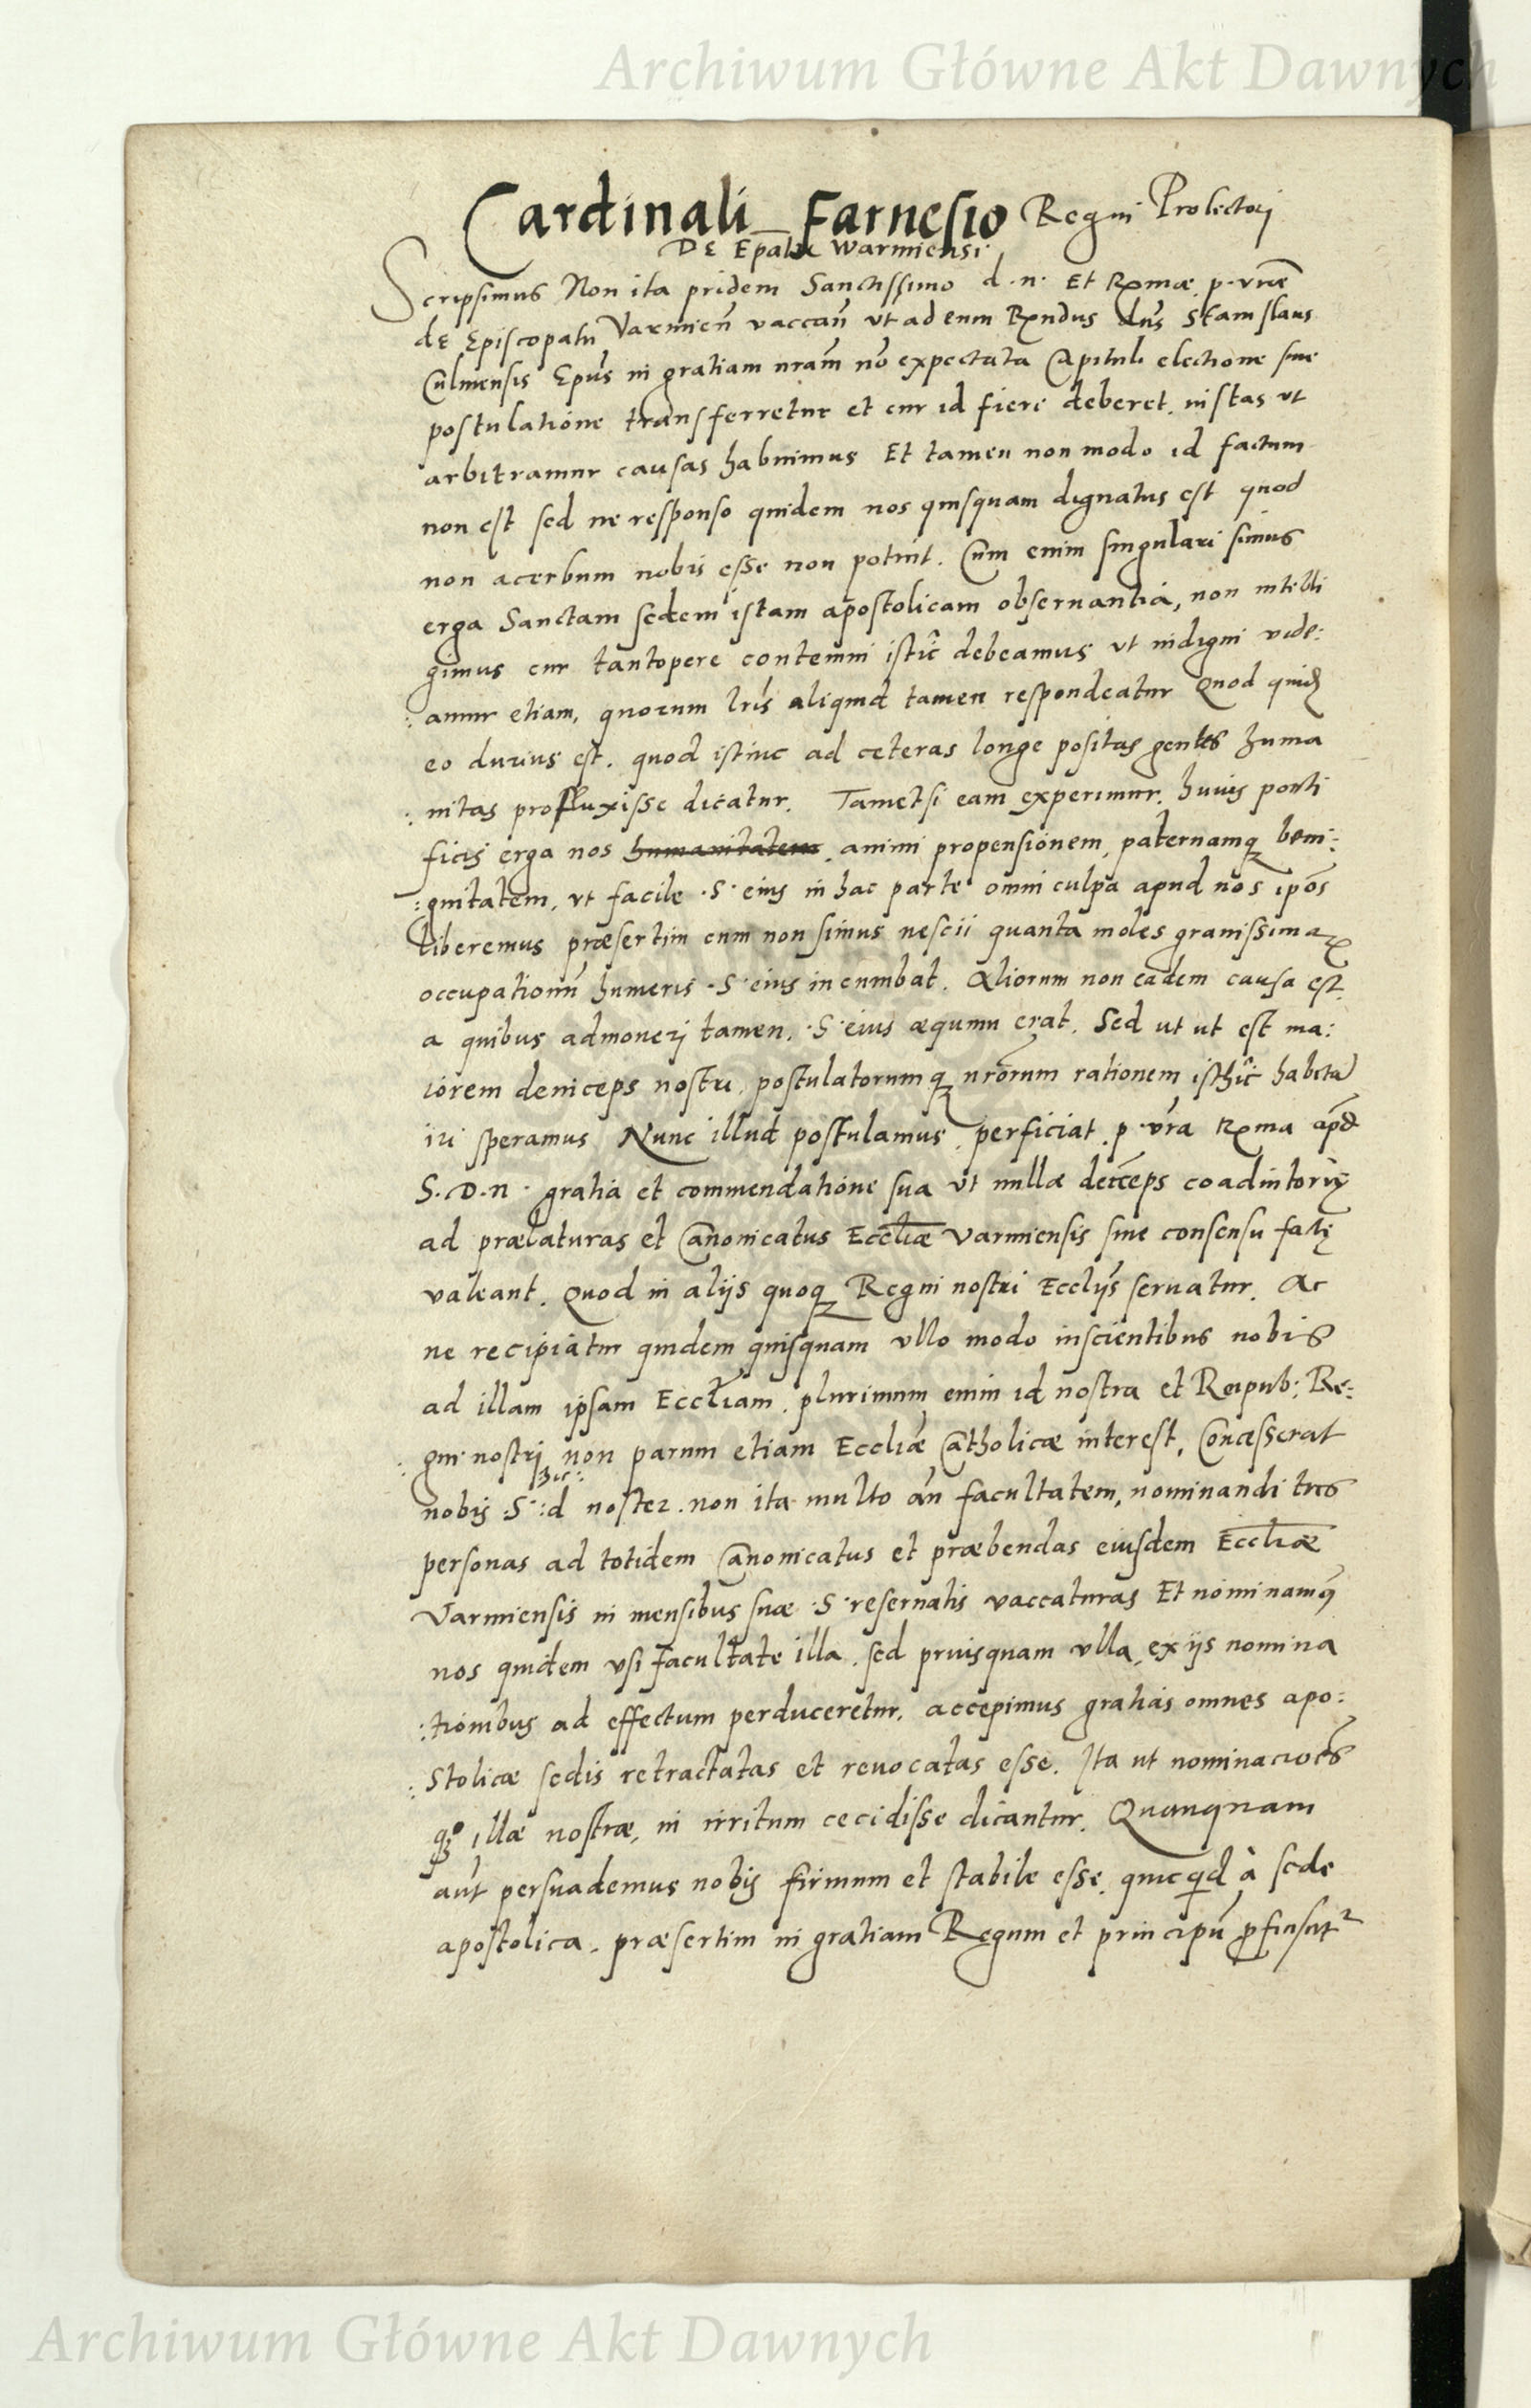 Archiwum Główne Akt Dawnych
Cardinali Farnesio Regni Protectori
DE Epatu Warmiensi
Scripsimus Non ita pridem Sanctissimo d.n. Et Romæ p. vræ
de Episcopatu Varmien̄ vaccan̄ ut ad eum Rondus dn̄s Stanislaus
Culmensis Epūs in gratiam nrām nō expectata Capituli electione siue
postulatione transferretur et cur id fieri deberet. iustas ut
arbitramur causas habuimus Et tamen non modo id factum
non est sed ne responso quidem nos quisquam dignatus est quod
non acerbum nobis esse non potuit. Cum enim singulari simus
erga Sanctam sedem istam apostolicam obseruantia, non intelli
gimus cur tantopere contemni istic debeamus ut indigni vide:
:amur etiam, quorum lrīs aliquid tamen respondeatur Quod quid
eo durius est. quod istinc ad ceteras longe positas gentes huma
:nitas profluxisse dicatur. Tametsi eam experimur. huius ponti
ficis erga nos humanitatem, animi propensionem, paternamq beni:
:gnitatem, ut facile .S. eius in hac parte omni culpa apud nos ipōs
liberemus præsertim cum non simus nescii quanta moles grauissimaꝝ
occupationū humeris .S. eius incumbat. Aliorum non eadem causa est
a quibus admoneri tamen. .S. eius æquum erat. Sed ut ut est ma:
iorem deinceps nostri, postulatorumq nrōrum rationem isthic habita
iri speramus Nunc illud postulamus, perficiat p. vrā Roma apd
S.D.n. gratia et commendatione sua ut nullæ deīceps coadiutoriȩ
ad prælaturas et Canonicatus Eccliæ Varmiensis sine consensu factȩ
valeant. Quod in alijs quoq Regni nostri Ecclijs seruatur. Ac
ne recipiatur quidem quisquam ullo modo inscientibus nobis
ad illam ipsam Eccliam. plurimum enim id nostra et Reipub: Re:
:gni nostri non parum etiam Eccliæ Catholicæ interest, Concesserat
nobis .S. :d noster. non ita multo an̄ facultatem, nominandi tres
personas ad totidem Canonicatus et præbendas eiusdem Eccliæ
Varmiensis in mensibus suæ .S. reseruatis vaccaturas Et nominamꝰ
nos quidem usi facultate illa. sed priusquam ulla, ex ijs nomina
:tionibus ad effectum perduceretur. accepimus gratias omnes apo:
:Stolicæ sedis retractatas et reuocatas esse. Ita ut nominacioēs
qꝫ illæ nostræ, in irritum cecidisse dicantur. Quanquam
aūt persuademus nobis firmum et stabile esse. quicqid à sede
apostolica. præsertim in gratiam Regum et principū
Archiwum Główne Akt Dawnych